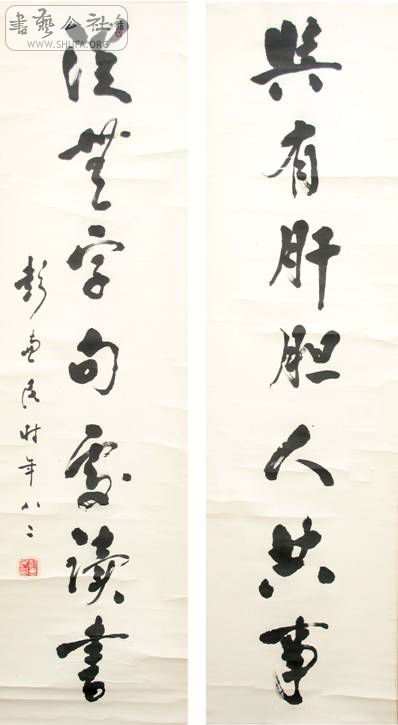 與有肝胆人共事
從無字句處讀書
彭 時年八二
書藝公社
WWW.SHUFA.ORG